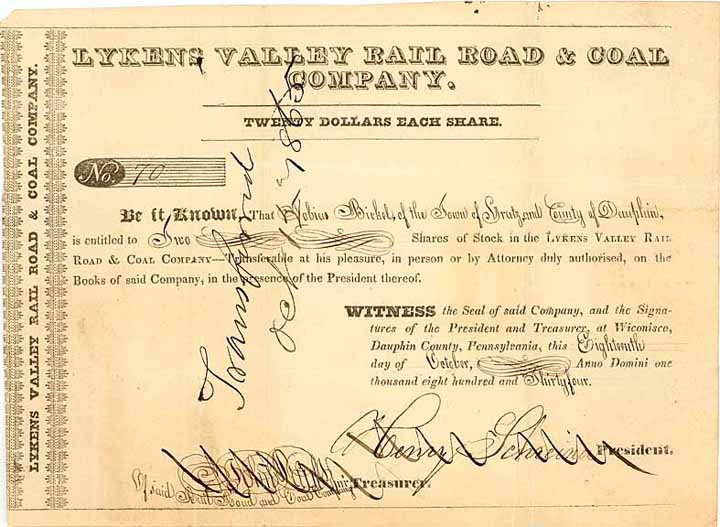 LYKENS VALLEY RAIL ROAD & COAL COMPANY.
LYKENS VALLEY RAIL ROAD & COAL
COMPANY.
TWENTY DOLLARS EACH SHARE.
No. 70
Be it Known, That Tobias Bickel, of the Town of Gratz, and County of Dauphin,
is entitled to Two Shares of Stock in the LYKENS VALLEY RAIL
ROAD & COAL COMPANY—Transferable at his pleasure, in person or by Attorney duly authorised, on the
Books of said Company, in the presence of the President thereof.
WITNESS the Seal of said Company, and the Signa-
tures of the President and Treasurer, at Wiconisco,
Dauphin County, Pennsylvania, this Eighteenth
day of October, Anno Domini one
thousand eight hundred and Thirtyfour.
Transferred
1865
Henry Schreiner President.
Treasurer.
Of said Rail Road and Coal Company